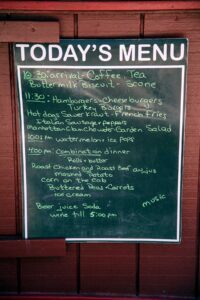 TODAY'S MENU
10:30: arrival - Coffee, Tea
Buttermilk Biscuit - Scone
11:30: Hamburgers - Cheeseburgers
Turkey Burgers
Hot dogs Sauerkraut - French Fries
Italian Sausage + Peppers
Manhattan Clam Chowder - Garden Salad
pm watermelon ice Pops
4:00 pm: Combination dinner
Rolls + butter
Roast Chicken and Roast Beef au jus
Mashed Potato
corn on the cob
Buttered Peas - Carrots
ice cream
Beer juice Soda
wine till 5:00 pm
music